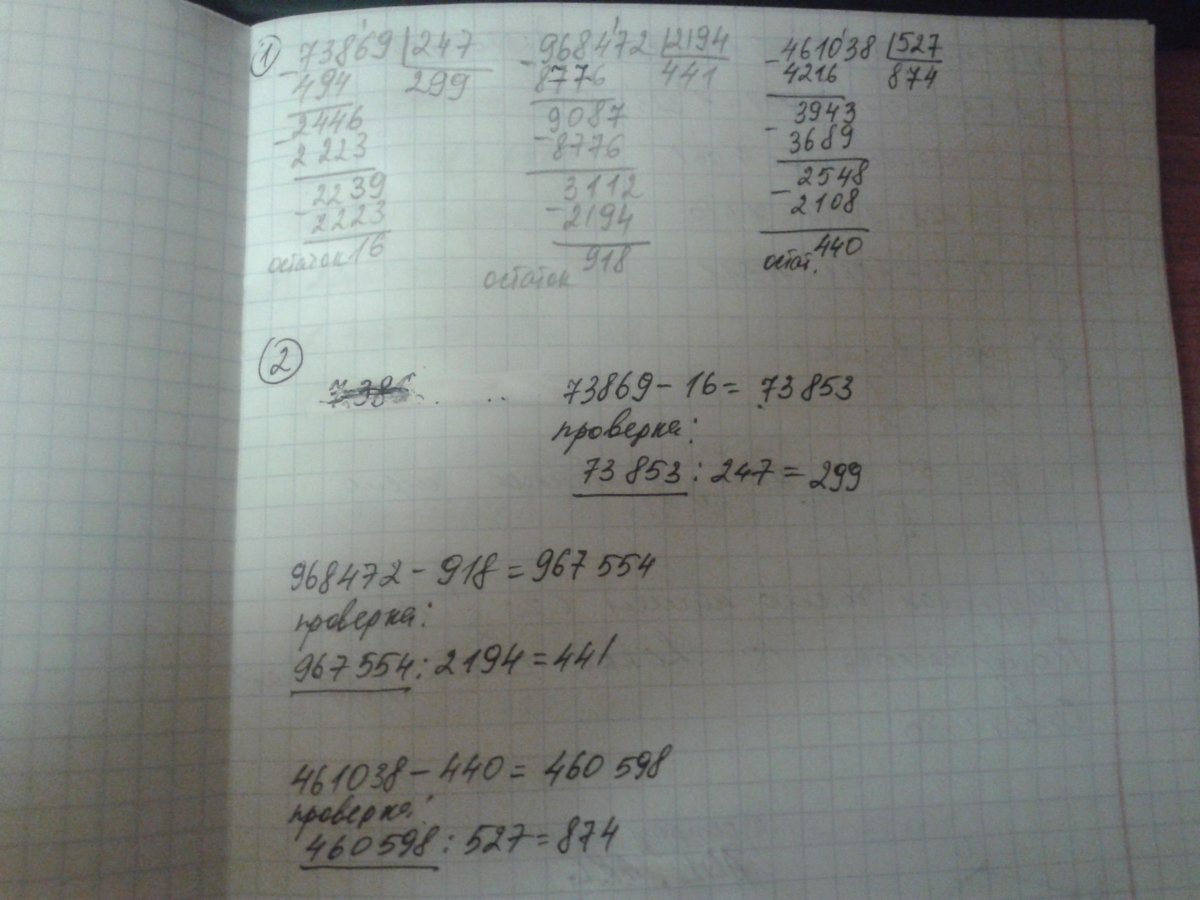 1
73869 | 247
- 494 299
2446
- 2223
2239
- 2223
остаток 16
- 968472 | 2194
8776 441
9087
- 8776
3112
- 2194
918
остаток
- 461038 | 527
4216 874
3943
- 3689
2548
- 2108
остат. 440
2
7386
73869 - 16 = 73853
проверка:
73853 : 247 = 299
968472 - 918 = 967554
проверка:
967554 : 2194 = 441
461038 - 440 = 460598
проверка:
460598 : 527 = 874